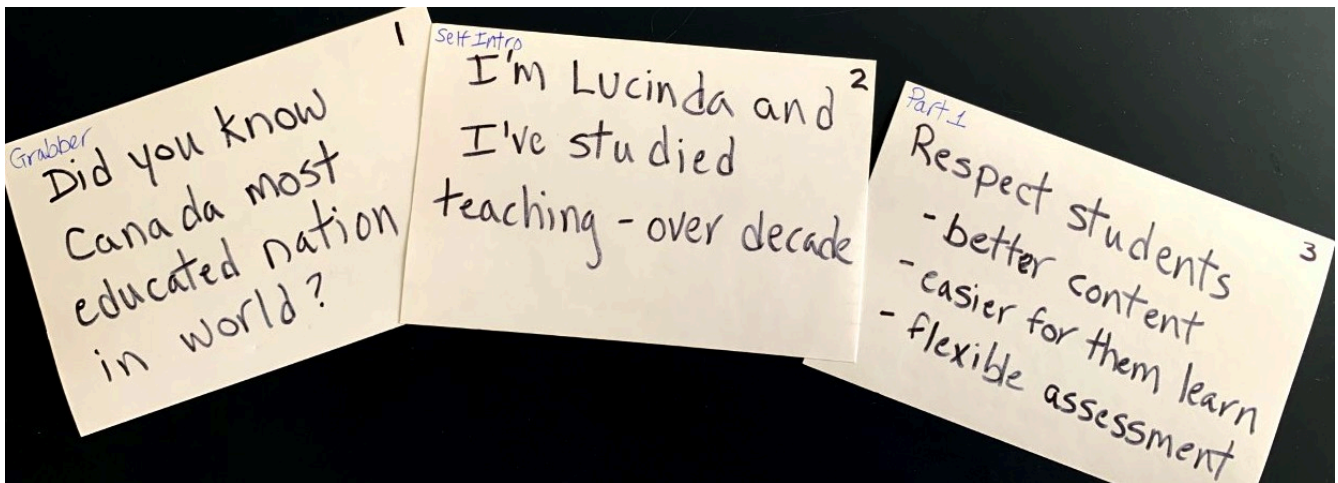 1
Grabber
Did you know
Canada most
educated nation
in world?
2
Self Intro
I'm Lucinda and
I've studied
teaching - over decade
3
Part 1
Respect students
- better content
- easier for them learn
- flexible assessment